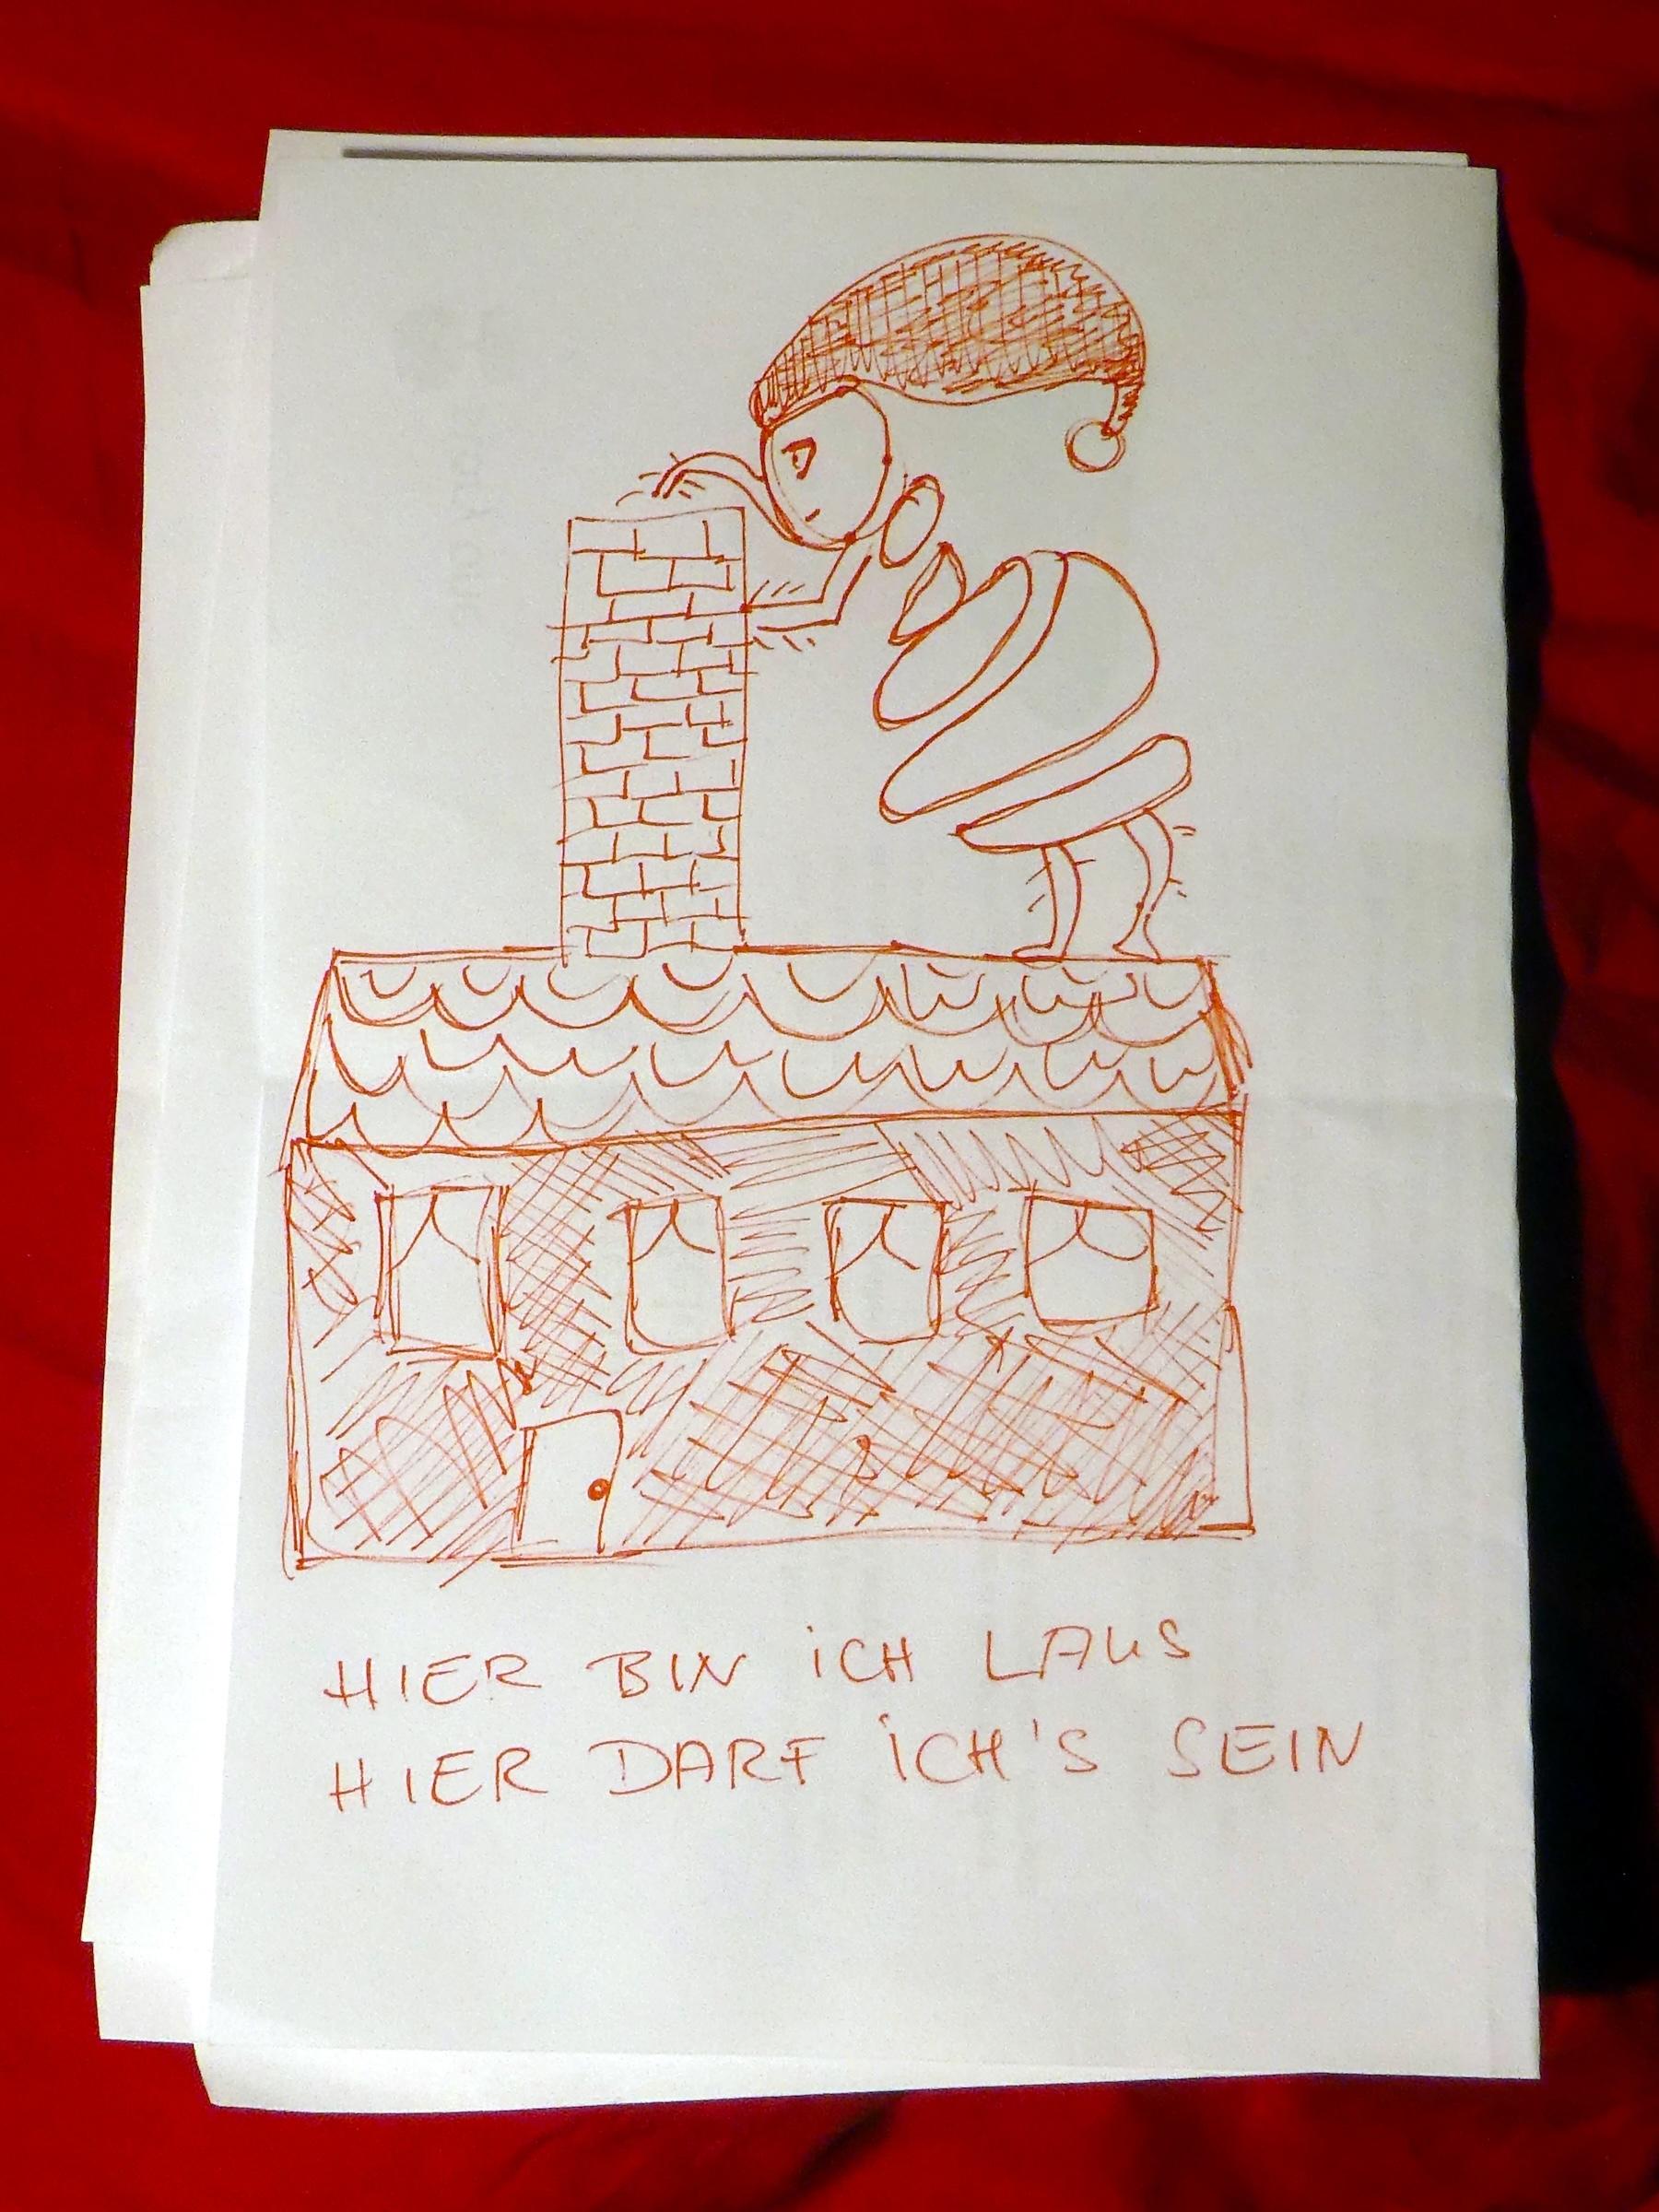 HIER BIN iCH LAUS
HIER DARF iCH'S SEIN